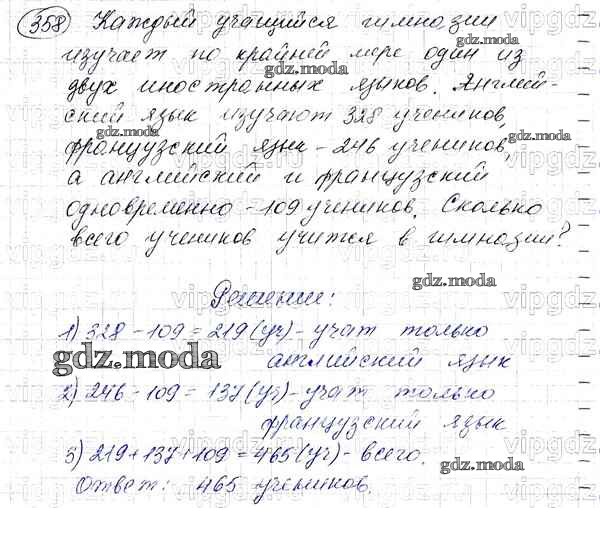 358 Каждый учащийся гимназии
изучает по крайней мере один из
двух иностранных языков. Англий-
ский язык изучают 328 учеников,
французский язык - 246 учеников,
а английский и французский
одновременно - 109 учеников. Сколько
всего учеников учится в гимназии?
Решение:
1) 328 - 109 = 219 (уч) - учат только
английский язык
2) 246 - 109 = 137 (уч) - учат только
французский язык
3) 219 + 137 + 109 = 465 (уч) - всего.
Ответ: 465 учеников.
gdz.moda